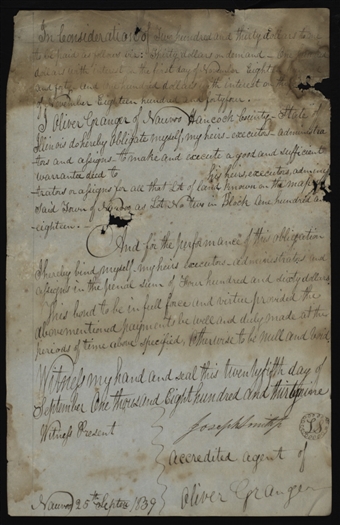 In Consideration of Two hundred and thirty dollars to
to be paid as follows viz: Thirty dollars on demand
dollars with interest on the first day of November Eight
and forty and one hundred dollars with interest on
of November Eighteen hundred and forty four.
I Oliver Granger of Nauvoo Hancock County State of
Illinois do hereby obligate myself, my heirs executors administra
tors and assigns to make and execute a good and sufficient
warrantee deed to his heirs, executors, adminis
trators or assigns for all that Lot of land known on the map of
said Town of Nauvoo as Lot No two in Block one hundred and
eighteen.
And for the performance of this obligation
I hereby bind myself, my heirs executors administrators and
assigns in the penal sum of Four hundred and sixty dollars
This bond to be in full force and virtue provided the
above mentioned payments be well and duly made at the
periods of time above specified, Otherwise to be null and void
Witness my hand and seal this twenty fifth day of
September One thousand Eight hundred and thirty nine
Witness Present
Joseph Smith
accredited agent of
Nauvoo 25th Septr 1839
Oliver Granger